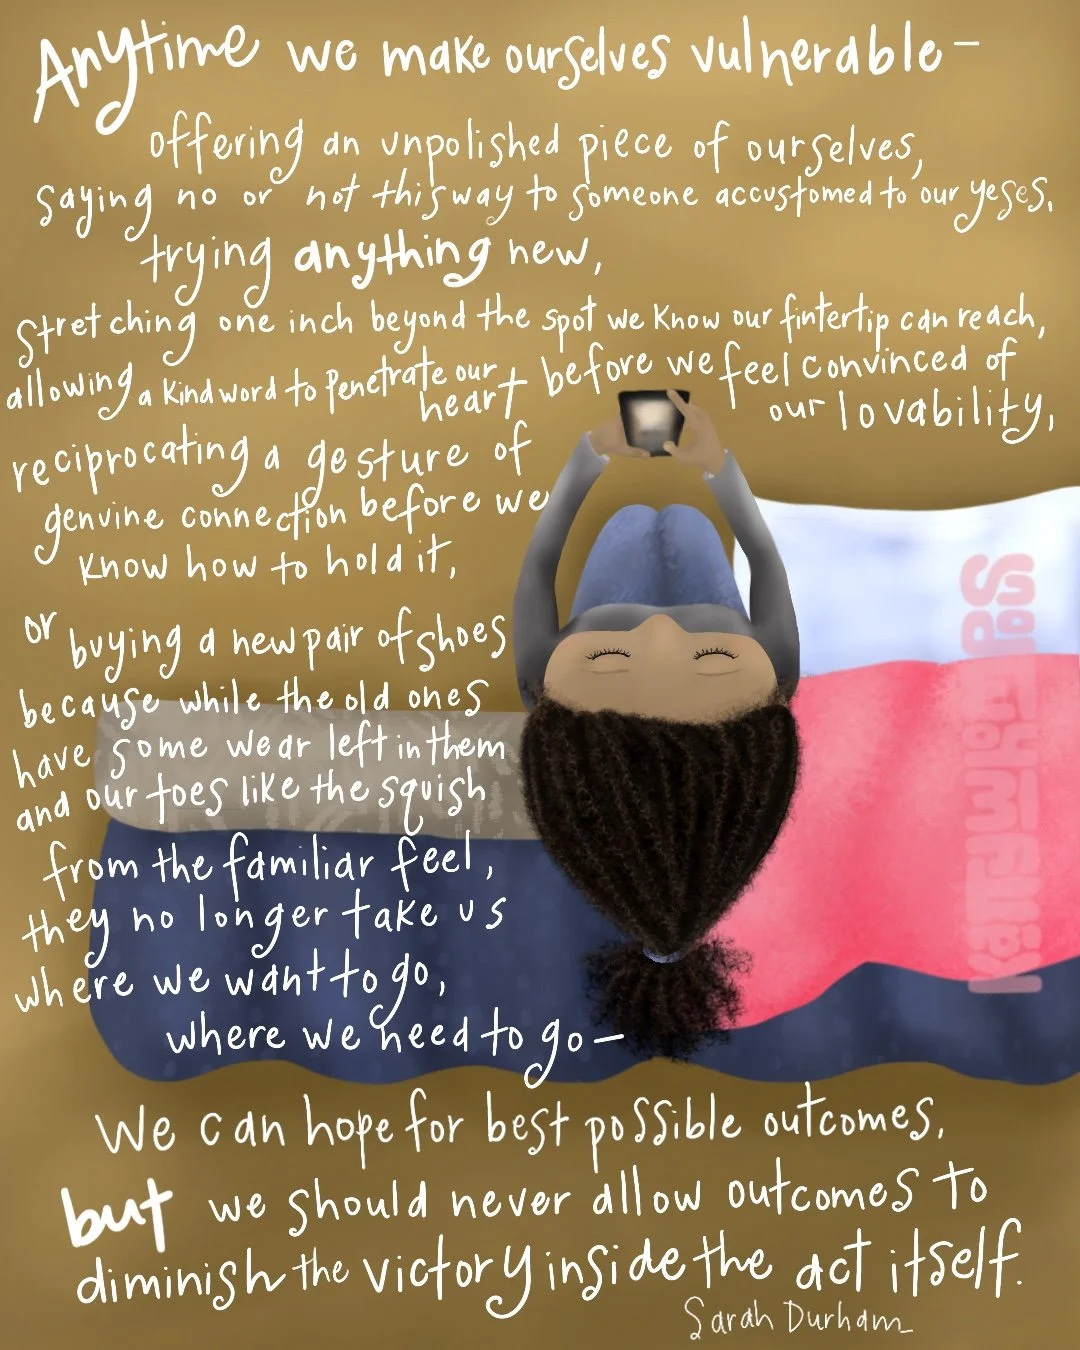 Anytime we make ourselves vulnerable—
offering an unpolished piece of ourselves,
saying no or not this way to someone accustomed to our yeses,
trying anything new,
stretching one inch beyond the spot we know our fintertip can reach,
allowing a kind word to penetrate our heart before we feel convinced of our lovability,
reciprocating a gesture of
genuine connection before we
know how to hold it,
or buying a new pair of shoes
because while the old ones
have some wear left in them
and our toes like the squish
from the familiar feel,
they no longer take us
where we want to go,
where we need to go—
We can hope for best possible outcomes,
but we should never allow outcomes to
diminish the victory inside the act itself.
Sarah Durham